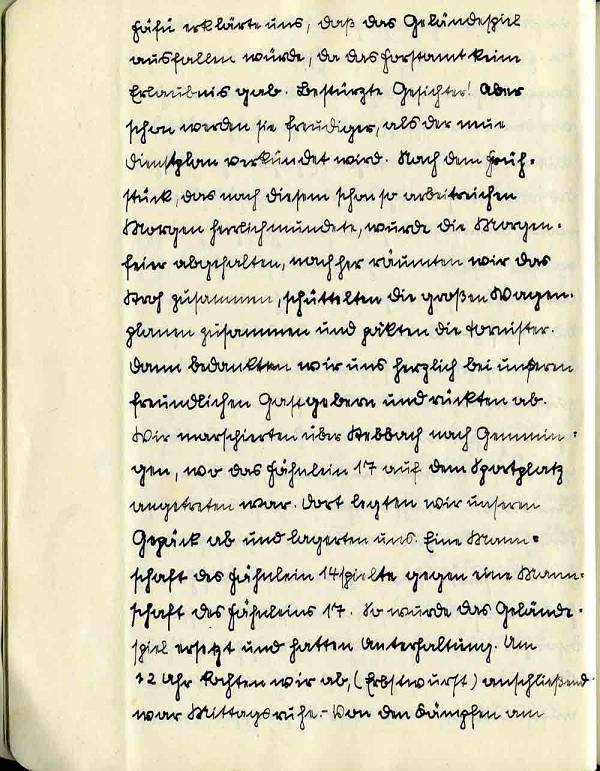 Fäfü erklärte uns, daß das Geländespiel
ausfallen würde, da das Forstamt kein
Erlaubnis gab. Bestürzte Gesichter! Aber
schon werden sie freudiger, als der neue
Dienstplan verkündet wird. Nach dem Früh-
stück, das nach diesem schon so arbeitreichen
Morgen herrlich mundete, wurde die Morgen-
feier abgehalten, nachher räumten wir das
Stroh zusammen, schüttelten die großen Wagen-
planen zusammen und päkten die Tornister.
Dann bedankten wir uns herzlich bei unseren
freundlichen Gastgebern und rückten ab.
Wir marschierten über Stebbach nach Gemmin-
gen, wo das Fähnlein 17 auf dem Sportplatz
angetreten war. Dort legten wir unseren
Gepäck ab und lagerten uns. Eine Mann-
schaft des Fähnlein 14 spielte gegen eine Mann-
schaft des Fähnleins 17. So wurde das Gelände-
spiel ersetzt und hatten Unterhaltung. Um
12 Uhr kochten wir ab, (Erbstwurst) anschließend
war Mittagsruhe.- Von den Kämpfen am